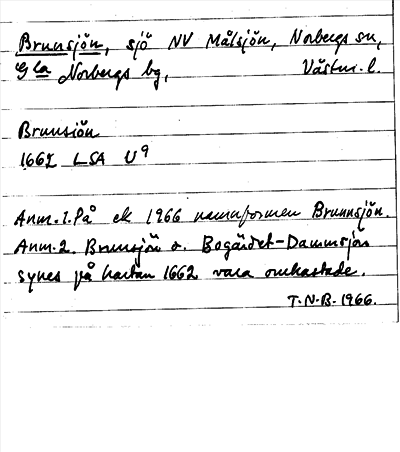 Brunsjön, sjö NV Målsjön, Norbergs sn,
G la Norbergs bg, Västm. l.
Brunsiön
1662 LSA U⁹
Anm. 1. På ek 1966 namnformen Brunnsjön.
Anm. 2. Brunsjön o. Bogärdet-Dammsjön
synes på kartan 1662 vara omkastade.
T.N.B. 1966.